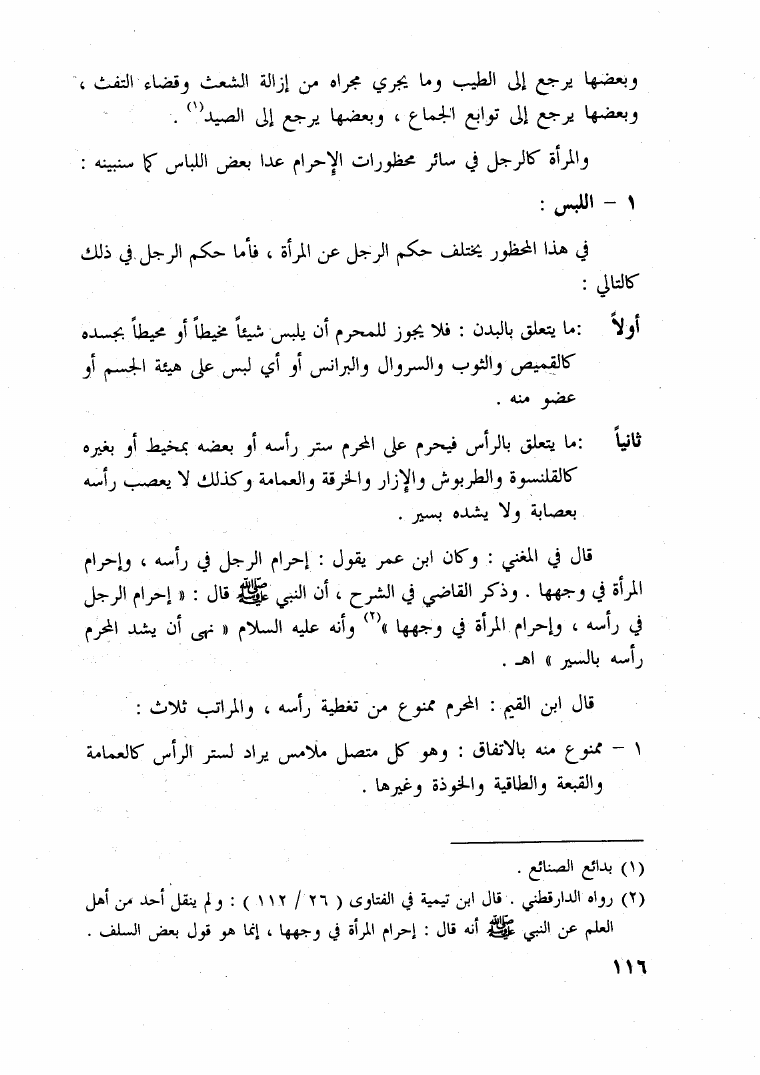 وبعضها يرجع إلى الطيب وما يجري مجراه من إزالة الشعث وقضاء التفث ،
وبعضها يرجع إلى توابع الجماع ، وبعضها يرجع إلى الصيد(١) .
والمرأة كالرجل في سائر محظورات الإحرام عدا بعض اللباس كما سنبينه :
١ – اللبس :
في هذا المحظور يختلف حكم الرجل عن المرأة ، فأما حكم الرجل في ذلك
كالتالي :
أولاً :ما يتعلق بالبدن : فلا يجوز للمحرم أن يلبس شيئاً مخيطاً أو محيطاً بجسده
كالقميص والثوب والسروال والبرانس أو أي لبس على هيئة الجسم أو
عضو منه .
ثانياً :ما يتعلق بالرأس فيحرم على المحرم ستر رأسه أو بعضه بمخيط أو بغيره
كالقلنسوة والطربوش والإزار والخرقة والعمامة وكذلك لا يعصب رأسه
بعصابة ولا يشده بسير .
قال في المغني : وكان ابن عمر يقول : إحرام الرجل في رأسه ، وإحرام
المرأة في وجهها . وذكر القاضي في الشرح ، أن النبي ﷺ قال : « إحرام الرجل
في رأسه ، وإحرام المرأة في وجهها »(٢) وأنه عليه السلام « نهى أن يشد المحرم
رأسه بالسير » اهـ .
قال ابن القيم : المحرم ممنوع من تغطية رأسه ، والمراتب ثلاث :
١ – ممنوع منه بالاتفاق : وهو كل متصل ملامس يراد لستر الرأس كالعمامة
والقبعة والطاقية والخوذة وغيرها .
(١) بدائع الصنائع .
(٢) رواه الدارقطني . قال ابن تيمية في الفتاوى ( ٢٦ / ١١٢ ) : ولم ينقل أحد من أهل
العلم عن النبي ﷺ أنه قال : إحرام المرأة في وجهها ، إنما هو قول بعض السلف .
١١٦